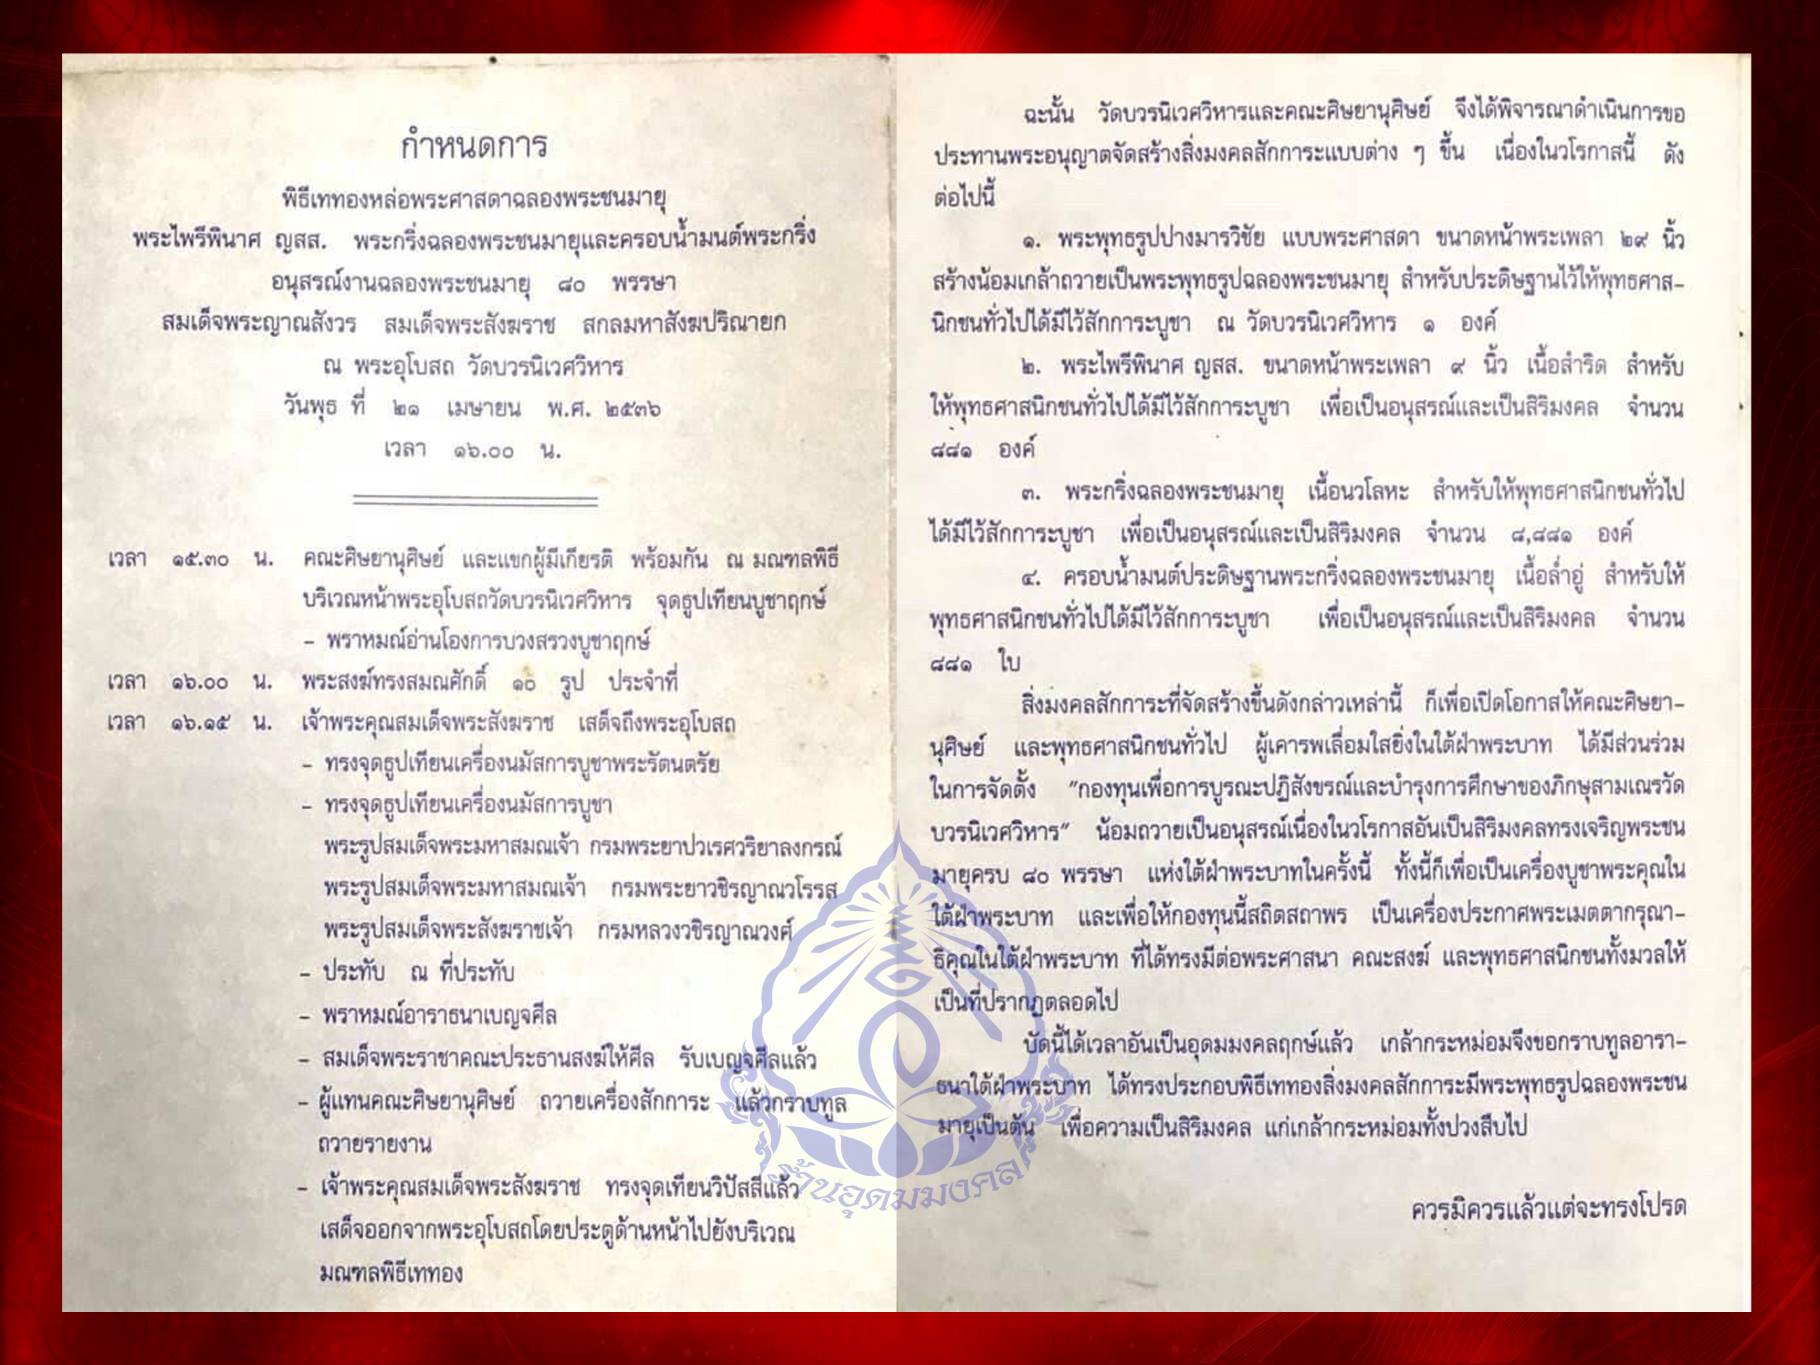 กำหนดการ
พิธีเททองหล่อพระศาสดาฉลองพระชนมายุ
พระไพรีพินาศ ญสส. พระกริ่งฉลองพระชนมายุและครอบน้ำมนต์พระกริ่ง
อนุสรณ์งานฉลองพระชนมายุ ๘๐ พรรษา
สมเด็จพระญาณสังวร สมเด็จพระสังฆราช สกลมหาสังฆปริณายก
ณ พระอุโบสถ วัดบวรนิเวศวิหาร
วันพุธ ที่ ๒๑ เมษายน พ.ศ. ๒๕๓๖
เวลา ๑๖.๐๐ น.
เวลา ๑๕.๓๐ น. คณะศิษยานุศิษย์ และแขกผู้มีเกียรติ พร้อมกัน ณ มณฑลพิธี
บริเวณหน้าพระอุโบสถวัดบวรนิเวศวิหาร จุดธูปเทียนบูชาฤกษ์
- พราหมณ์อ่านโองการบวงสรวงบูชาฤกษ์
เวลา ๑๖.๐๐ น. พระสงฆ์ทรงสมณศักดิ์ ๑๐ รูป ประจำที่
เวลา ๑๖.๑๕ น. เจ้าพระคุณสมเด็จพระสังฆราช เสด็จถึงพระอุโบสถ
- ทรงจุดธูปเทียนเครื่องนมัสการบูชาพระรัตนตรัย
- ทรงจุดธูปเทียนเครื่องนมัสการบูชา
พระรูปสมเด็จพระมหาสมณเจ้า กรมพระยาปวเรศวริยาลงกรณ์
พระรูปสมเด็จพระมหาสมณเจ้า กรมพระยาวชิรญาณวโรรส
พระรูปสมเด็จพระสังฆราชเจ้า กรมหลวงวชิรญาณวงศ์
- ประทับ ณ ที่ประทับ
- พราหมณ์อาราธนาเบญจศีล
- สมเด็จพระราชาคณะประธานสงฆ์ให้ศีล รับเบญจศีลแล้ว
- ผู้แทนคณะศิษยานุศิษย์ ถวายเครื่องสักการะ แล้วกราบทูล
ถวายรายงาน
- เจ้าพระคุณสมเด็จพระสังฆราช ทรงจุดเทียนวิปัสสีแล้ว
เสด็จออกจากพระอุโบสถโดยประตูด้านหน้าไปยังบริเวณ
มณฑลพิธีเททอง
ฉะนั้น วัดบวรนิเวศวิหารและคณะศิษยานุศิษย์ จึงได้พิจารณาดำเนินการขอ
ประทานพระอนุญาตจัดสร้างสิ่งมงคลสักการะแบบต่าง ๆ ขึ้น เนื่องในวโรกาสนี้ ดัง
ต่อไปนี้
๑. พระพุทธรูปปางมารวิชัย แบบพระศาสดา ขนาดหน้าพระเพลา ๒๙ นิ้ว
สร้างน้อมเกล้าถวายเป็นพระพุทธรูปฉลองพระชนมายุ สำหรับประดิษฐานไว้ให้พุทธศาส-
นิกชนทั่วไปได้มีไว้สักการะบูชา ณ วัดบวรนิเวศวิหาร ๑ องค์
๒. พระไพรีพินาศ ญสส. ขนาดหน้าพระเพลา ๙ นิ้ว เนื้อสำริด สำหรับ
ให้พุทธศาสนิกชนทั่วไปได้มีไว้สักการะบูชา เพื่อเป็นอนุสรณ์และเป็นสิริมงคล จำนวน
๘๘๑ องค์
๓. พระกริ่งฉลองพระชนมายุ เนื้อนวโลหะ สำหรับให้พุทธศาสนิกชนทั่วไป
ได้มีไว้สักการะบูชา เพื่อเป็นอนุสรณ์และเป็นสิริมงคล จำนวน ๘,๘๘๑ องค์
๔. ครอบน้ำมนต์ประดิษฐานพระกริ่งฉลองพระชนมายุ เนื้อล่ำอู่ สำหรับให้
พุทธศาสนิกชนทั่วไปได้มีไว้สักการะบูชา เพื่อเป็นอนุสรณ์และเป็นสิริมงคล จำนวน
๘๘๑ ใบ
สิ่งมงคลสักการะที่จัดสร้างขึ้นดังกล่าวเหล่านี้ ก็เพื่อเปิดโอกาสให้คณะศิษยา-
นุศิษย์ และพุทธศาสนิกชนทั่วไป ผู้เคารพเลื่อมใสยิ่งในใต้ฝ่าพระบาท ได้มีส่วนร่วม
ในการจัดตั้ง "กองทุนเพื่อการบูรณะปฏิสังขรณ์และบำรุงการศึกษาของภิกษุสามเณรวัด
บวรนิเวศวิหาร" น้อมถวายเป็นอนุสรณ์เนื่องในวโรกาสอันเป็นสิริมงคลทรงเจริญพระชน
มายุครบ ๘๐ พรรษา แห่งใต้ฝ่าพระบาทในครั้งนี้ ทั้งนี้ก็เพื่อเป็นเครื่องบูชาพระคุณใน
ใต้ฝ่าพระบาท และเพื่อให้กองทุนนี้สถิตสถาพร เป็นเครื่องประกาศพระเมตตากรุณา-
ธิคุณในใต้ฝ่าพระบาท ที่ได้ทรงมีต่อพระศาสนา คณะสงฆ์ และพุทธศาสนิกชนทั้งมวลให้
เป็นที่ปรากฏตลอดไป
บัดนี้ได้เวลาอันเป็นอุดมมงคลฤกษ์แล้ว เกล้ากระหม่อมจึงขอกราบทูลอารา-
ธนาใต้ฝ่าพระบาท ได้ทรงประกอบพิธีเททองสิ่งมงคลสักการะมีพระพุทธรูปฉลองพระชน
มายุเป็นต้น เพื่อความเป็นสิริมงคล แก่เกล้ากระหม่อมทั้งปวงสืบไป
ควรมิควรแล้วแต่จะทรงโปรด
ร้านอุดมมงคล